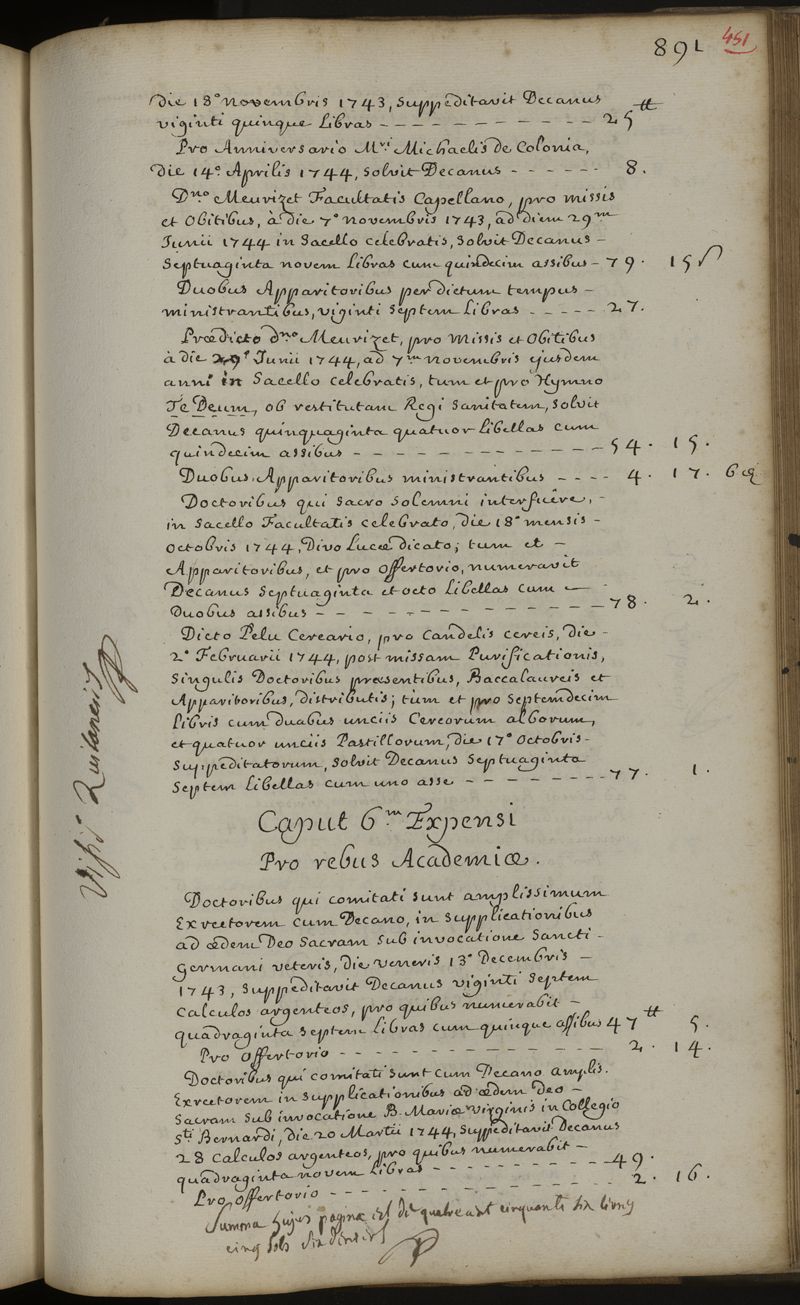 891
451
Die 18° novembris 1743, suppeditavit Decanus
viginti quinque Libras - - - - - - - - - - 25 ₶
Pro Anniversario Mri Michaelis de Colonia,
Die 14° Aprilis 1744, solvit Decanus - - - - - - 8.
Dno Meurizet Facultatis Capellano, pro missis
et Obitibus, à die 7° novembris 1743, ad diem 29m
Junii 1744 in Sacello celebratis, solvit Decanus -
septuaginta novem Libras cum quindecim assibus - 79. 15 s
Duobus Apparitoribus per dictum tempus -
ministrantibus, viginti septem Libras - - - - - 27.
Prædicto dno Meurizet, pro Missis et Obitibus
à die 29° Junii 1744, ad 7m novembris ejusdem
anni in Sacello celebratis, tum et pro Hymno
Te Deum, ob restitutam Regi sanitatem, solvit
Decanus quinquaginta quatuor Libellas cum
quindecim assibus - - - - - - - - - - - - 54. 15.
Duobus Apparitoribus ministrantibus - - - - 4. 17. 6 d
Doctoribus qui sacro solemni interfuêre, -
in Sacello Facultatis celebrato, die 18° mensis -
Octobris 1744, Divo Lucæ dicato; tum et -
Apparitoribus, et pro offertorio, numeravit
Decanus septuaginta et octo Libellas cum -
Duobus assibus - - - - - - - - - - - - - 78. 2.
Dicto Pelu Cereario, pro Candelis cereis, die -
2° Februarii 1744, post missam Purificationis,
singulis Doctoribus præsentibus, Baccalaureis et
Apparitoribus, distributis; tum et pro septemdecim
Libris cum duabus unciis Cereorum alborum,
et quatuor unciis Pastillorum, die 17° Octobris -
suppeditatorum, solvit Decanus septuaginta
septem Libellas cum uno asse - - - - - - - - 77. 1.
Caput 6m Expensi
Pro rebus Academiæ.
Doctoribus qui comitati sunt amplissimum
Exrectorem cum Decano, in supplicationibus
ad ædem Deo sacram sub invocatione Sancti -
Germani veteris, die veneris 13° Decembris -
1743, suppeditavit Decanus viginti septem
Calculos argenteos, pro quibus numerabit -
quadraginta septem Libras cum quinque assibus 47 ₶ 5.
Pro offertorio - - - - - - - - - - - - 2. 14.
Doctoribus qui comitati sunt cum Decano amplis.
Exrectorem in supplicationibus ad ædem Deo -
sacram sub invocatione B. Mariæ virginis in Collegio
Sti Bernardi, die 20 Martii 1744, suppeditavit Decanus
28 Calculos argenteos, pro quibus numerabit -
quadraginta novem Libras - - - - - - - - - 49.
Pro offertorio - - - - - - - - - - - - 2. 16.
Summa hujus paginæ est de quatre cent cinquante six livres
cinq sols six deniers